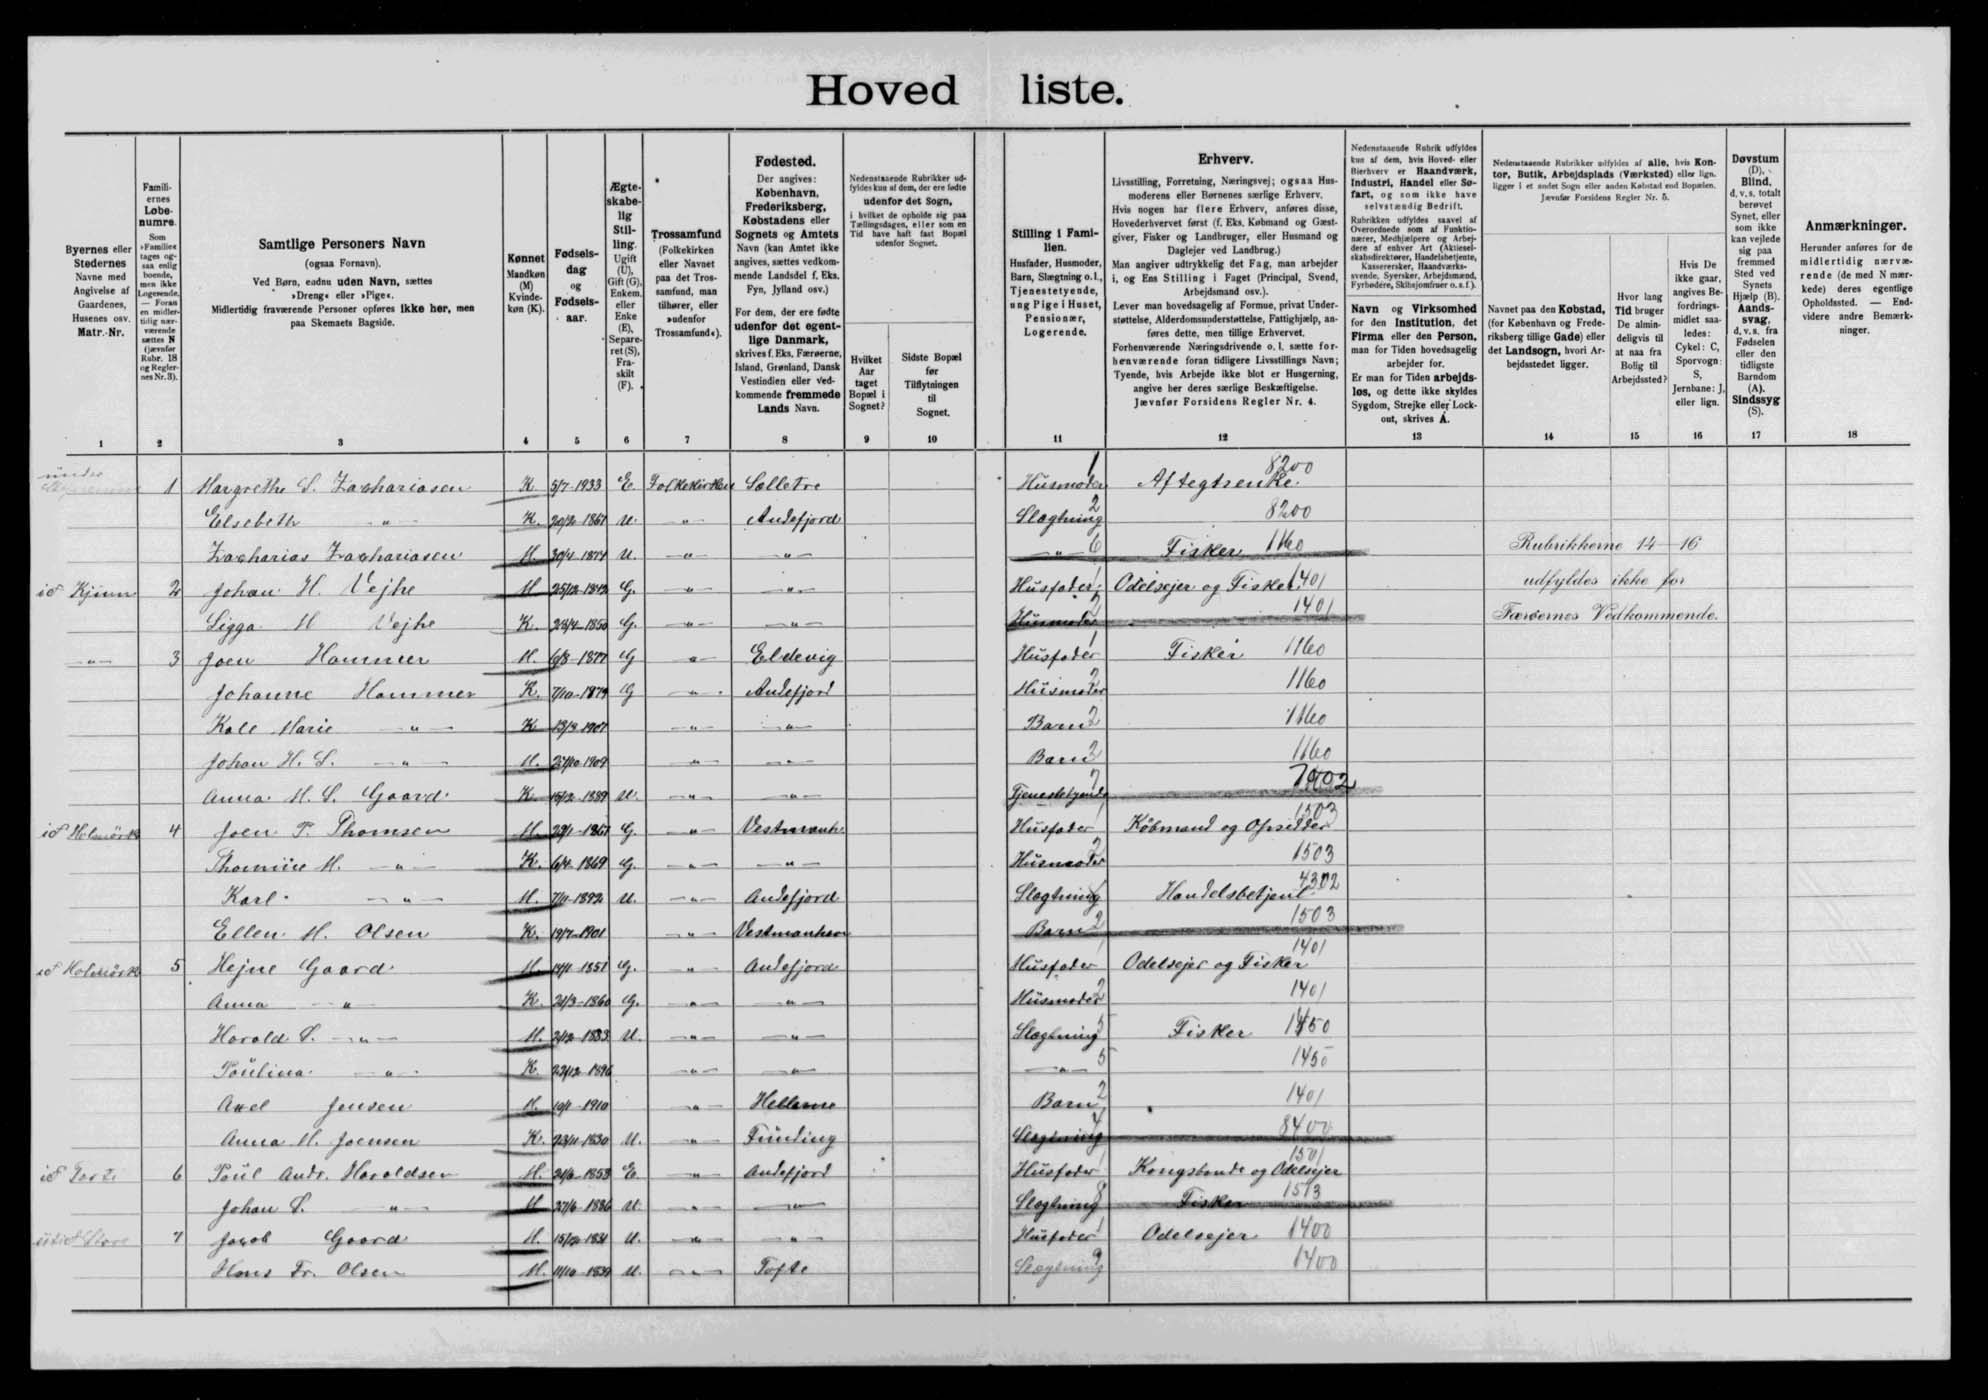 Hoved liste.
Byernes eller Stedernes Navne med Angivelse af Gaardenes, Husenes osv. Matr.-Nr.
Familiernes Løbenumre. Som »Familie« tages ogsaa enlig boende, men ikke Logerende. — Foran en midlertidig nærværende sættes N (jævnfør Rubr. 18 og Reglernes Nr. 3).
Samtlige Personers Navn (ogsaa Fornavn). Ved Børn, endnu uden Navn, sættes »Dreng« eller »Pige«. Midlertidig fraværende Personer opføres ikke her, men paa Skemaets Bagside.
Kønnet Mandkøn (M) Kvindekøn (K).
Fødselsdag og Fødselsaar.
Ægteskabelig Stilling. Ugift (U), Gift (G), Enkem. eller Enke (E), Separeret (S), Fraskilt (F).
Trossamfund (Folkekirken eller Navnet paa det Trossamfund, man tilhører, eller »udenfor Trossamfund«).
Fødested. Der angives: København, Frederiksberg, Købstadens eller Sognets og Amtets Navn (kan Amtet ikke angives, sættes vedkommende Landsdel f. Eks. Fyn, Jylland osv.) For dem, der ere fødte udenfor det egentlige Danmark, skrives f. Eks. Færøerne, Island, Grønland, Dansk Vestindien eller vedkommende fremmede Lands Navn.
Nedenstaaende Rubrikker udfyldes kun af dem, der ere fødte udenfor det Sogn, i hvilket de opholde sig paa Tællingsdagen, eller som en Tid have haft fast Bopæl udenfor Sognet.
Hvilket Aar taget Bopæl i Sognet?
Sidste Bopæl før Tilflytningen til Sognet.
Stilling i Familien. Husfader, Husmoder, Barn, Slægtning o. l., Tjenestetyende, ung Pige i Huset, Pensionær, Logerende.
Erhverv. Livsstilling, Forretning, Næringsvej; ogsaa Husmoderens eller Børnenes særlige Erhverv. Hvis nogen har flere Erhverv, anføres disse, Hovederhvervet først (f. Eks. Købmand og Gæstgiver, Fisker og Landbruger, eller Husmand og Daglejer ved Landbrug.) Man angiver udtrykkelig det Fag, man arbejder i, og Ens Stilling i Faget (Principal, Svend, Arbejdsmand osv.). Lever man hovedsagelig af Formue, privat Understøttelse, Alderdomsunderstøttelse, Fattighjælp, anføres dette, men tillige Erhvervet. Forhenværende Næringsdrivende o. l. sætte forhenværende foran tidligere Livsstillings Navn; Tyende, hvis Arbejde ikke blot er Husgerning, angive her deres særlige Beskæftigelse. Jævnfør Forsidens Regler Nr. 4.
Nedenstaaende Rubrik udfyldes kun af dem, hvis Hoved- eller Bierhverv er Haandværk, Industri, Handel eller Søfart, og som ikke have selvstændig Bedrift. Rubrikken udfyldes saavel af Overordnede som af Funktionærer, Medhjælpere og Arbejdere af enhver Art (Aktieselskabsdirektører, Handelsbetjente, Kasserersker, Haandværkssvende, Syersker, Arbejdsmænd, Fyrbødere, Skibsjomfruer o. s. f.). Navn og Virksomhed for den Institution, det Firma eller den Person, man for Tiden hovedsagelig arbejder for. Er man for Tiden arbejdsløs, og dette ikke skyldes Sygdom, Strejke eller Lockout, skrives A.
Nedenstaaende Rubrikker udfyldes af alle, hvis Kontor, Butik, Arbejdsplads (Værksted) eller lign. ligger i et andet Sogn eller anden Købstad end Bopælen. Jævnfør Forsidens Regler Nr. 5.
Navnet paa den Købstad, (for København og Frederiksberg tillige Gade) eller det Landsogn, hvori Arbejdsstedet ligger.
Hvor lang Tid bruger De almindeligvis til at naa fra Bolig til Arbejdssted?
Hvis De ikke gaar, angives Befordringsmidlet saaledes: Cykel: C, Sporvogn: S, Jernbane: J, eller lign.
Døvstum (D), Blind, d. v. s. totalt berøvet Synet, eller som ikke kan vejlede sig paa fremmed Sted ved Synets Hjælp (B). Aandssvag, d. v. s. fra Fødselen eller den tidligste Barndom (A). Sindssyg (S).
Anmærkninger. Herunder anføres for de midlertidig nærværende (de med N mærkede) deres egentlige Opholdssted. — Endvidere andre Bemærkninger.
1 2 3 4 5 6 7 8 9 10 11 12 13 14 15 16 17 18
1 Margrethe S. Zachariasen K 5/7-1933 E Folkekirken Selletre Husmoder 1 Aftegtsenke 8200
Elsebeth -"- K. 20/12-1861 U. -"- Andefjord Slægtning 2 8200
Zacharias Zachariasen M 30/4-1874 U. -"- -"- -"- 6 Fisker 1160 Rubrikkerne 14-16
id Kjønn 2 Johan H. Vejhe M 25/12-1842 G. -"- -"- Husfader 1 Odelsejer og Fisker 1401 udfyldes ikke for
Sigga M Vejhe K. 28/4-1850 G. -"- -"- Husmoder 2 1401 Færøernes Vedkommende.
-"- 3 Joen Hammer M. 6/8-1877 G -"- Eldevig Husfader 1 Fisker 1160
Johanne Hammer K. 7/10-1879 G -"- Andefjord Husmoder 2 1160
Kall Marie -"- K 13/8-1907 -"- -"- Barn 2 1160
Johan H. S. -"- M. 27/10-1909 -"- -"- Barn 2 1160
Anna M. S. Gaard K 15/12-1889 U. -"- -"- Tjenestetyende 7 7002
4 Joen P. Thomsen M. 29/1-1861 G. -"- Vestmanh. Husfader 1 Købmand og Opsidder 1503
Thomine M. -"- K. 6/4-1869 G. -"- -"- Husmoder 2 1503
Karl -"- M. 7/11-1892 U. -"- Andefjord Slægtning Handelsbetjent 4302
Ellen M. Olsen K. 19/7-1901 -"- Vestmanhavn Barn 2 1503
5 Hejne Gaard M. 14/1-1851 G. -"- Andefjord Husfader 1 Odelsejer og Fisker 1401
Anna -"- K. 21/3-1860 G. -"- -"- Husmoder 2 1401
Harald S. -"- M. 2/12-1883 U. -"- -"- Slægtning 5 Fisker 1450
Paulina -"- K. 22/12-1896 -"- -"- -"- 5 1450
Axel Jensen M. 10/1-1910 -"- Hellerne Barn 2 1401
Anna M. Joensen K. 23/11-1830 U. -"- Funding Slægtning 4 8400
6 Poul Andr. Haraldsen M. 21/6-1853 E -"- Andefjord Husfader 1 Kongsbonde og Odelsejer 1501
Johan S. -"- M 27/6-1886 U. -"- -"- Slægtning 8 Fisker 1513
7 Jacob Gaard M. 15/12-1831 U. -"- -"- Husfader 1 Odelsejer 1400
Hans Fr. Olsen M. 11/10-1839 U. -"- Tofte Slægtning 9 1400